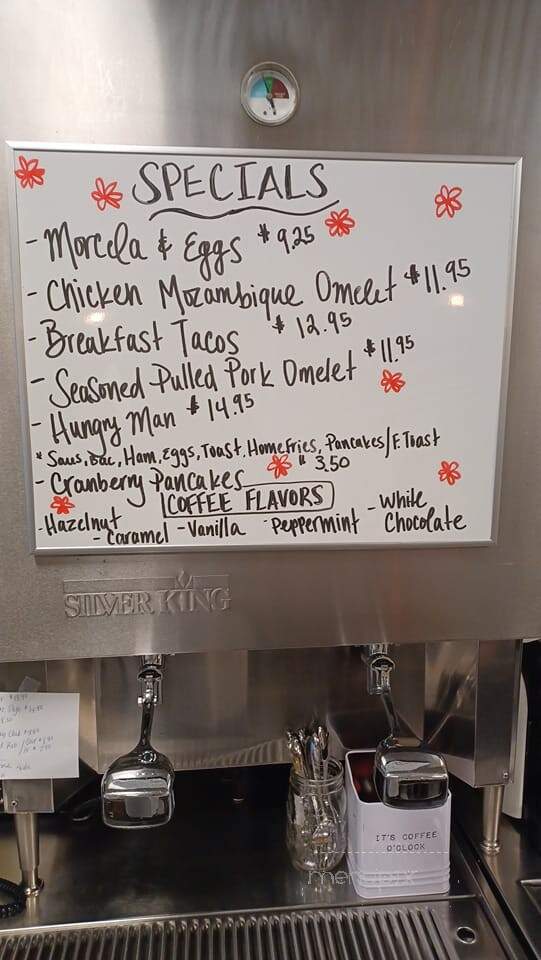 SPECIALS
- Morcela & Eggs $9.25
- Chicken Mozambique Omelet $11.95
- Breakfast Tacos $12.95
- Seasoned Pulled Pork Omelet $11.95
- Hungry Man $14.95
* Saus, Bac, Ham, Eggs, Toast, Homefries, Pancakes/F. Toast
- Cranberry Pancakes $3.50
COFFEE FLAVORS
- Hazelnut
- Caramel
- Vanilla
- Peppermint
- White Chocolate
SILVER KING
IT'S COFFEE
O'CLOCK